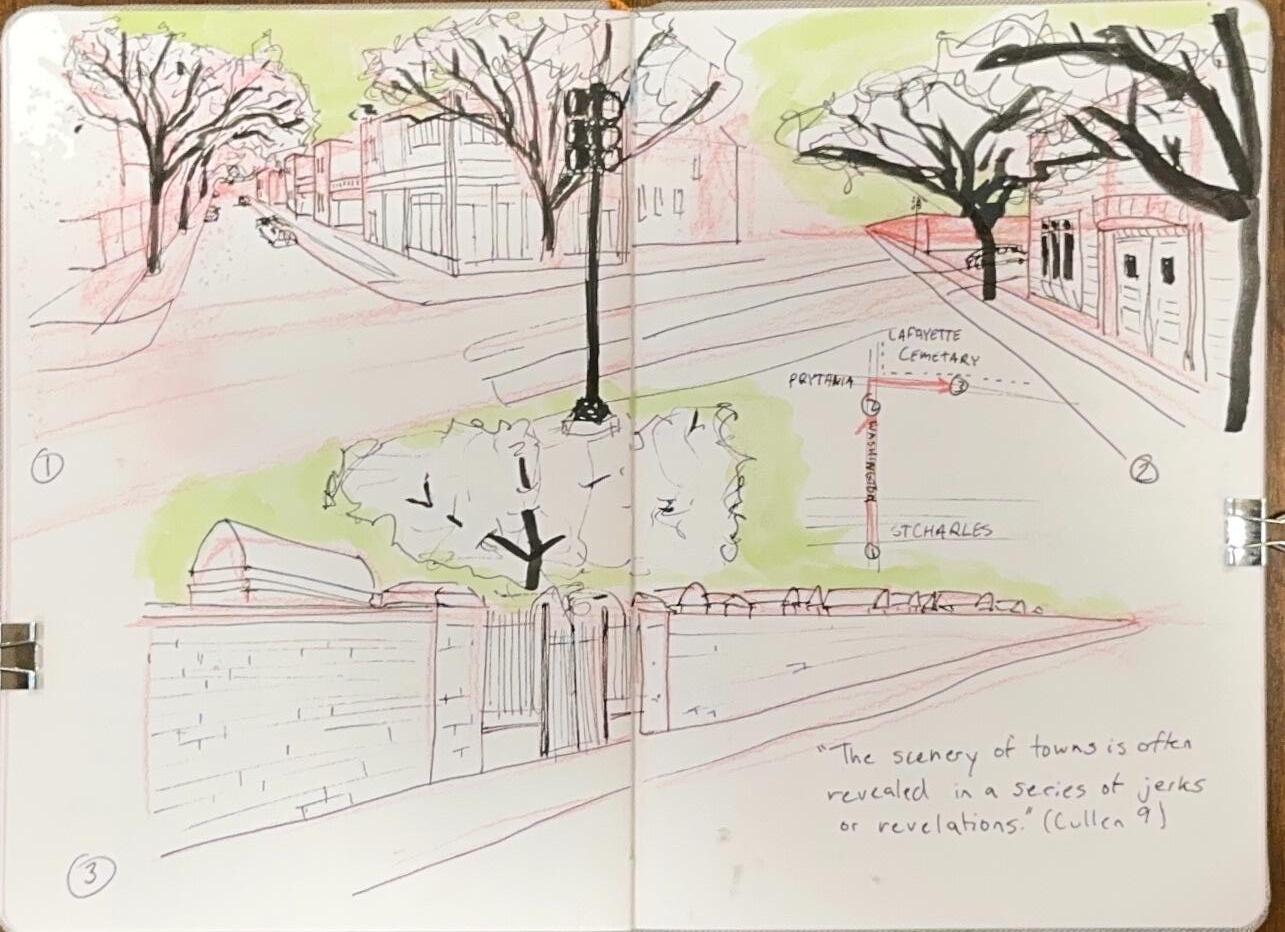 LAFAYETTE
CEMETARY
PRYTANIA
3
12
WASHINGTON
1
2
STCHARLES
1
"The scenery of towns is often
revealed in a series of jerks
or revelations." (Cullen 9)
3